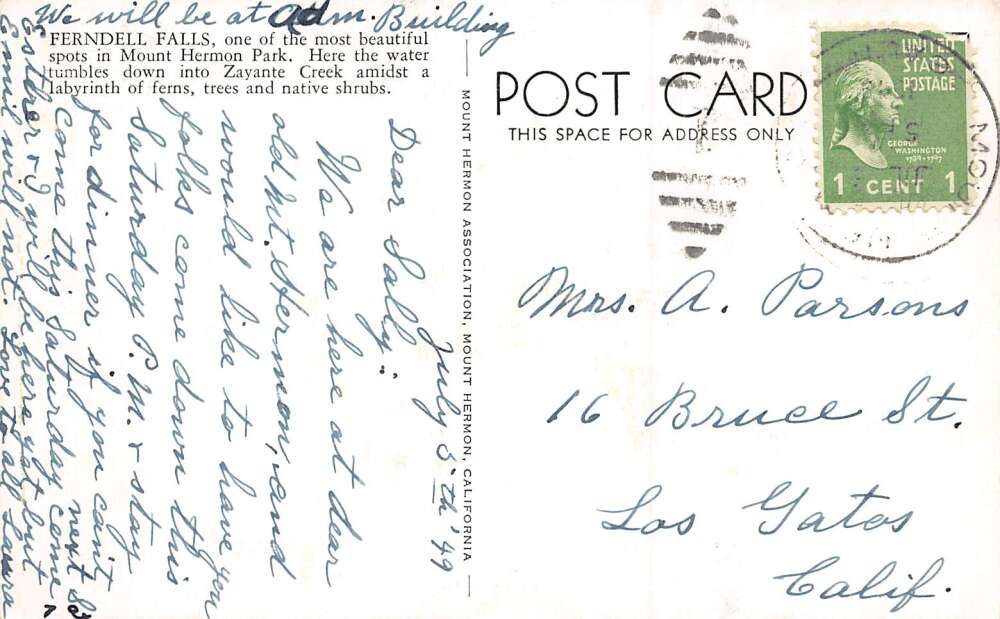 We will be at Adm. Building
FERNDELL FALLS, one of the most beautiful
spots in Mount Hermon Park. Here the water
tumbles down into Zayante Creek amidst a
labyrinth of ferns, trees and native shrubs.
July 5th '49
Dear Sally:
We are here at dear
old Mt. Hermon, and
would like to have you
folks come down this
Saturday P.M. & stay
for dinner if you can't
come this Saturday come ^ next Sat
Esther & I will be here yet but
Emil will not. Love to all Laura
MOUNT HERMON ASSOCIATION, MOUNT HERMON, CALIFORNIA
POST CARD
THIS SPACE FOR ADDRESS ONLY
UNITED
STATES
POSTAGE
GEORGE
WASHINGTON
1789-1797
1 CENT 1
Mrs. A. Parsons
16 Bruce St.
Los Gatos
Calif.